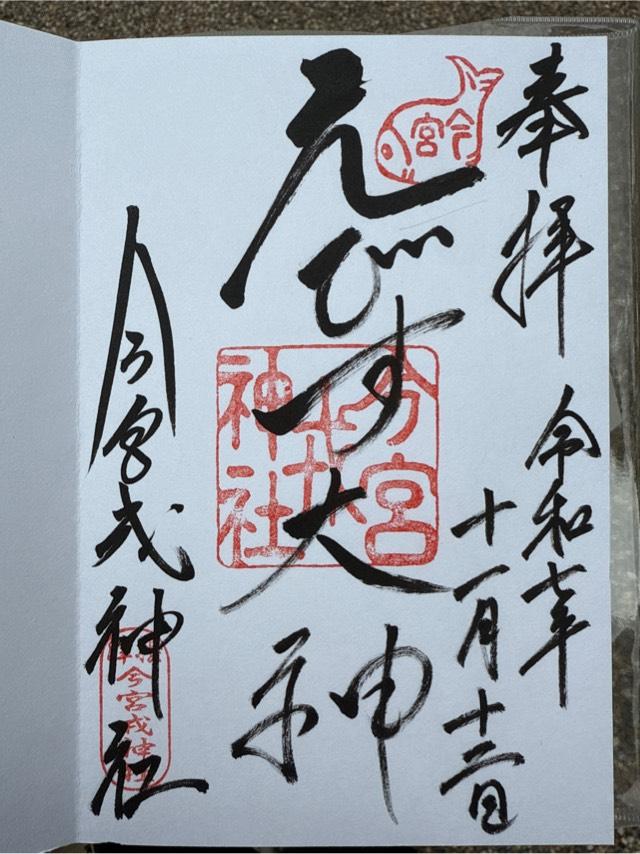 奉拝
令和七年
十一月十三日
今宮
えびす大神
今宮戎神社
今宮戎神社
今宮戎神社